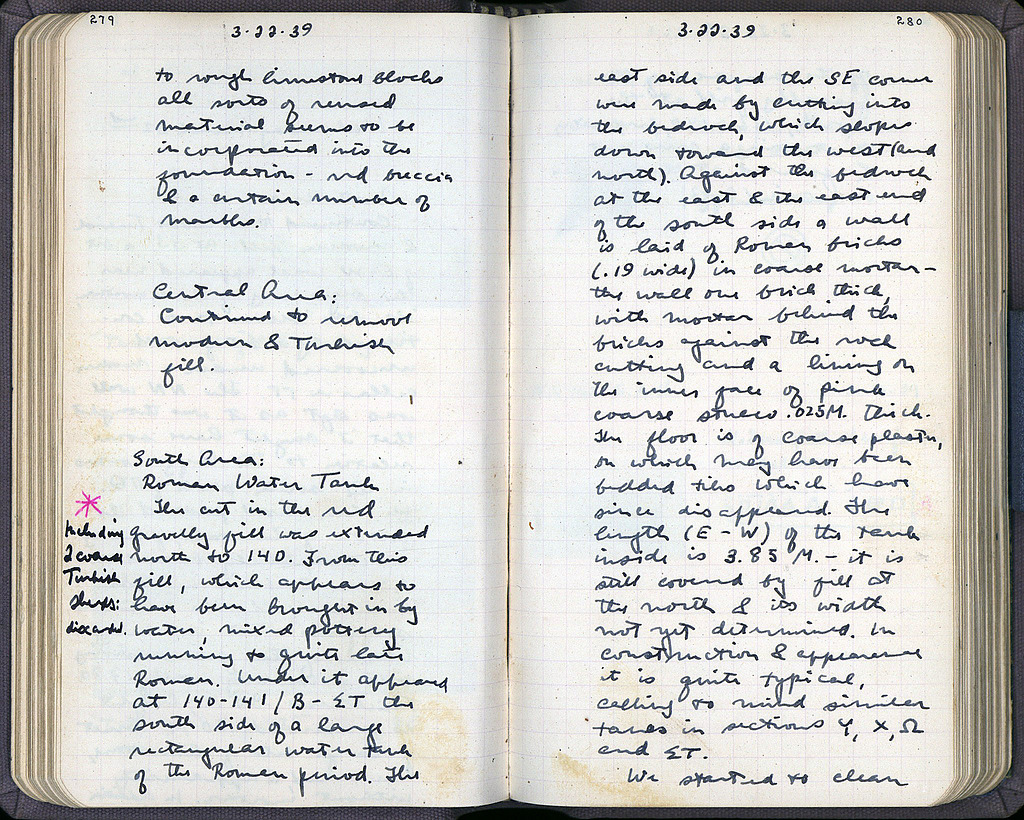 279
3-22-39
to rough limestone blocks
all sorts of reused
material seems to be
incorporated into the
foundation - red breccia
& a certain number of
marbles.
Central Area:
Continued to remove
modern & Turkish
fill.
South Area:
Roman Water Tank
The cut in the red
gravelly fill was extended
north to 140. From this
fill, which appears to
have been brought in by
water, mixed pottery
running to quite late
Roman. Under it appeared
at 140-141/B-ΣΤ the
south side of a large
rectangular water tank
of the Roman period. The
*
Including
2 coarse
Turkish
sherds:
discarded.
280
3-22-39
east side and the SE corner
were made by cutting into
the bedrock, which slopes
down toward the west (and
north). Against the bedrock
at the east & the east end
of the south side a wall
is laid of Roman bricks
(.19 wide) in coarse mortar -
the wall one brick thick,
with mortar behind the
bricks against the rock
cutting and a lining on
the inner face of pink
coarse stucco .025M. thick.
The floor is of coarse plaster,
on which may have been
bedded tiles which have
since disappeared. The
length (E-W) of the tank
inside is 3.85 M. - it is
still covered by fill at
the north & its width
not yet determined. In
construction & appearance
it is quite typical,
calling to mind similar
tanks in sections Υ, Χ, Ω
and ΣΤ.
We started to clean